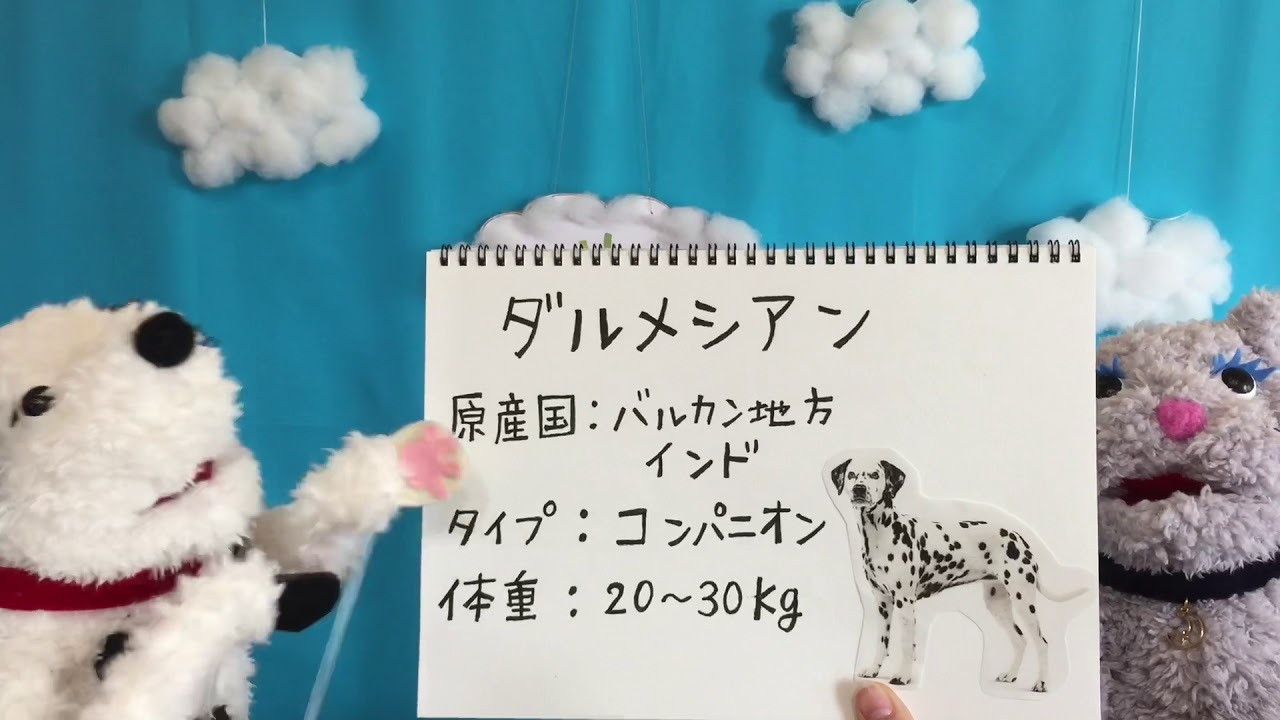 ダルメシアン
原産国：バルカン地方
インド
タイプ：コンパニオン
体重：20〜30kg